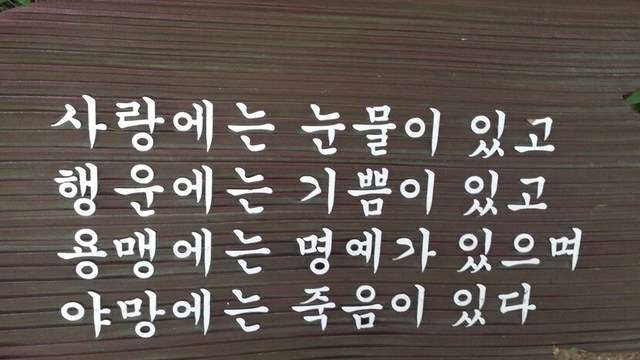 사랑에는 눈물이 있고
행운에는 기쁨이 있고
용맹에는 명예가 있으며
야망에는 죽음이 있다